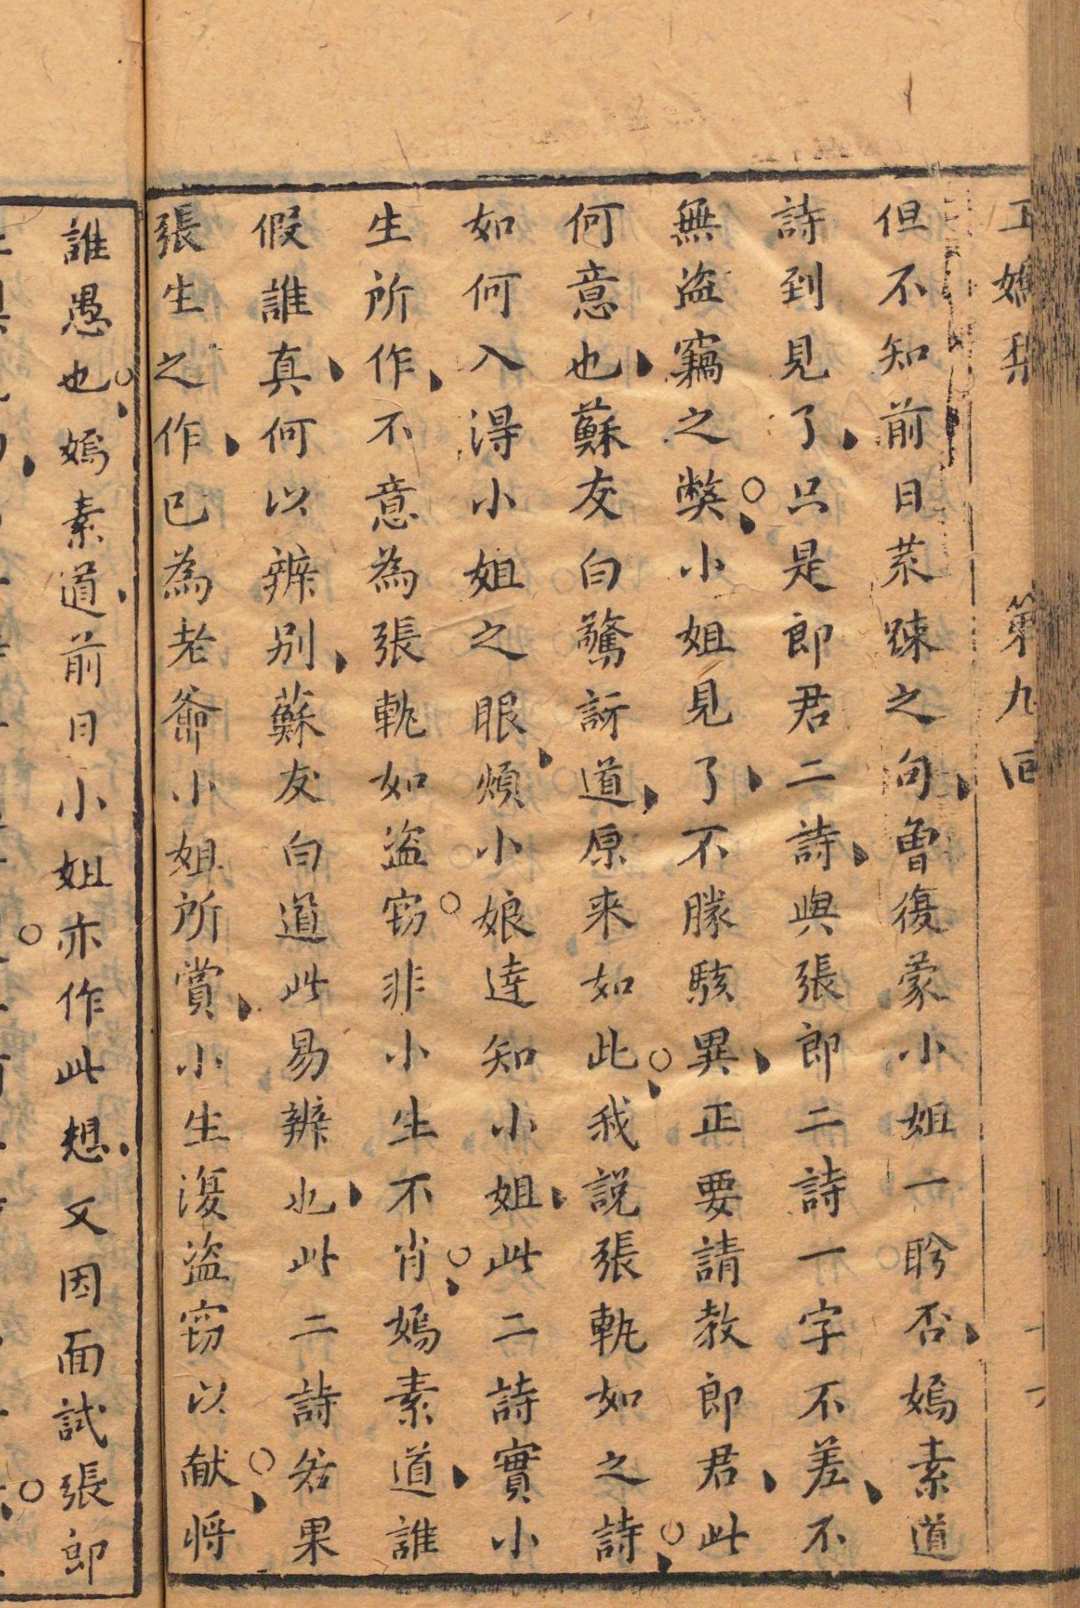 玉嬌梨 第九回
但不知前日菜踈之句曾復蒙小姐一盻否嫣素道
詩到見了只是郎君二詩與張郎二詩一字不差不
無盜竊之獘小姐見了不勝駭異正要請教郎君此
何意也蘇友白驚訝道原来如此我説張軌如之詩
如何入得小姐之眼煩小娘達知小姐此二詩實小
生所作不意為張軌如盜窃非小生不肖嫣素道誰
假誰真何以辨别蘇友白道此易辨也此二詩若果
張生之作已為老爺小姐所賞小生復盜窃以献将
誰愚也嫣素道前日小姐亦作此想又因面試張郎